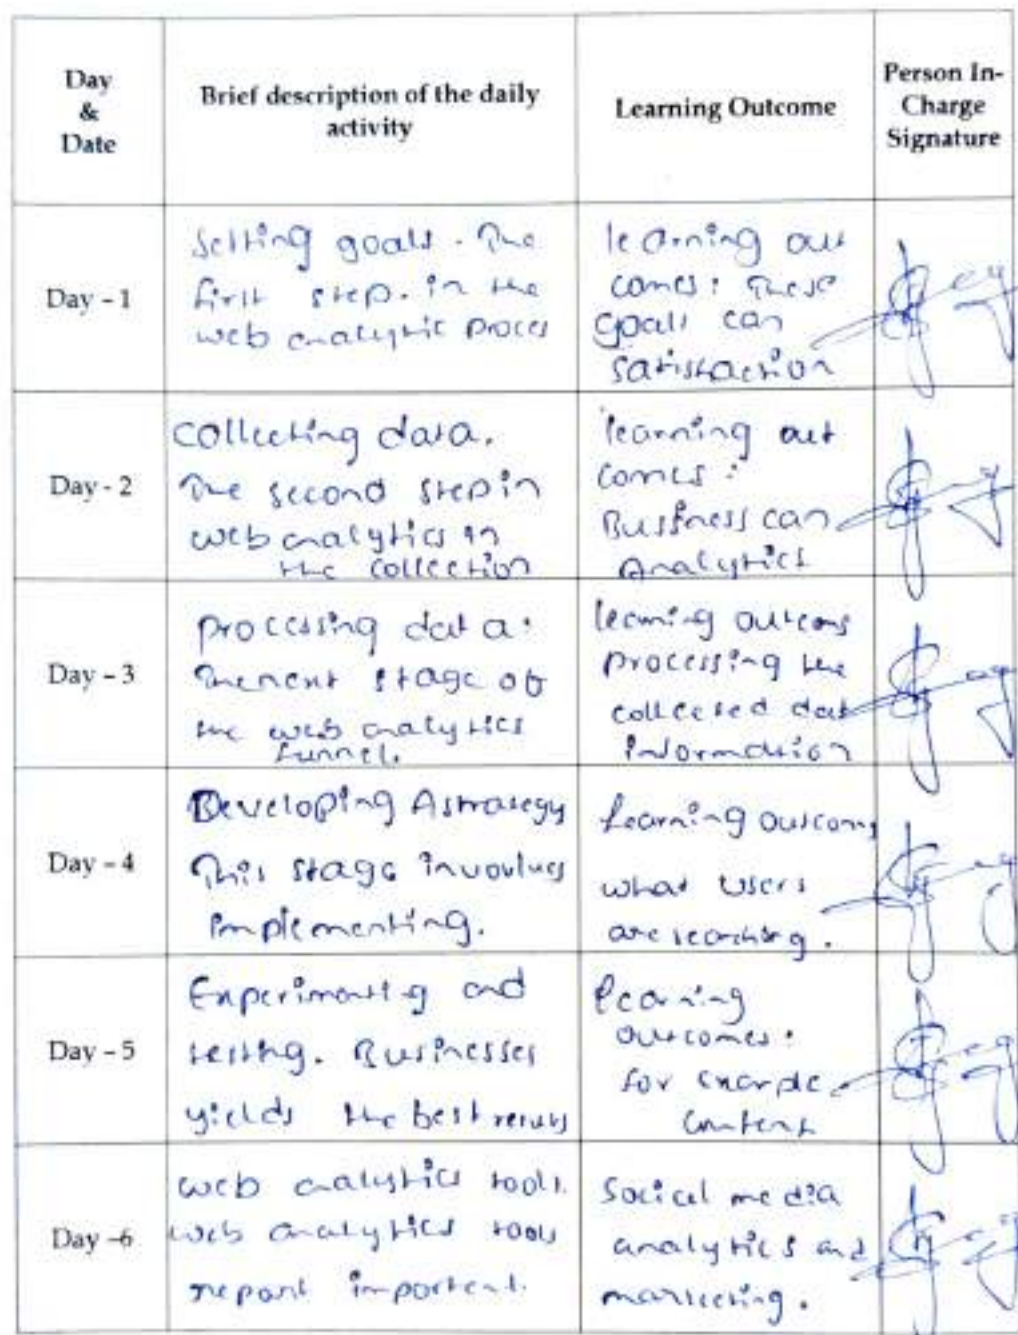 Day
&
Date
Brief description of the daily
activity
Learning Outcome
Person In-
Charge
Signature
Day - 1
Setting goals. The
first step. in the
web analytic proces
learning out
comes: These
goals can
satisfaction
Day - 2
collecting data.
The second step in
web analytics in
the collection
learning out
comes:
Business can
Analytics
Day - 3
processing data:
The next stage of
the web analytics
funnel.
learning outcoms
processing the
collected dat
information
Day - 4
Developing A strategy
This stage involves
implementing.
Learning outcoms
what users
are searching.
Day - 5
Experimenting and
testing. Businesses
yields the best results
learning
outcomes:
for example
Content
Day -6
web analytics tools.
web analytics tools
report important.
Social media
analytics and
marketing.